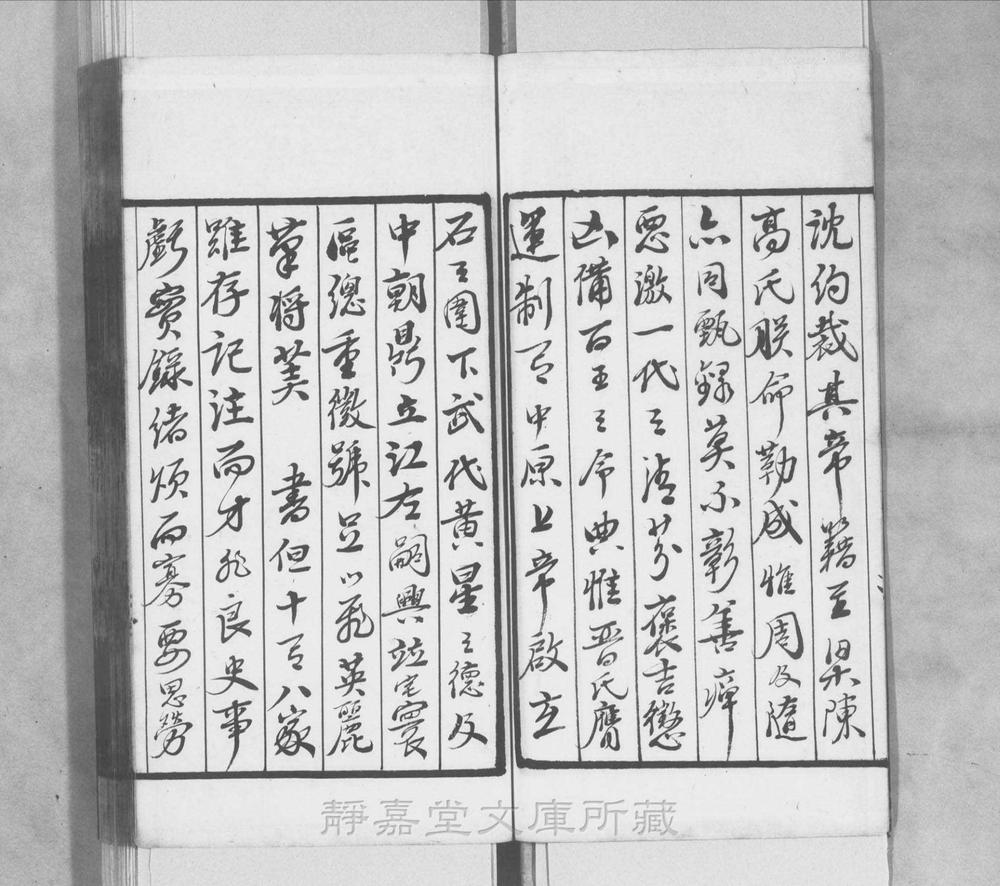 沈約裁其帝籍至梁陳
高氏朕命勒成惟周及隨
亦同甄錄莫不彰善癉
惡激一代之清芬褒吉懲
凶備百王之令典惟晉氏膺
運制有中原上帝啟玄
石之圖下武代黃星之德及
中朝鼎立江左嗣興竝宅寰
區總重徽號足以飛英麗
筆將美 書但十有八家
雖存記注而才非良史事
虧實錄緒煩而寡要思勞
靜嘉堂文庫所藏